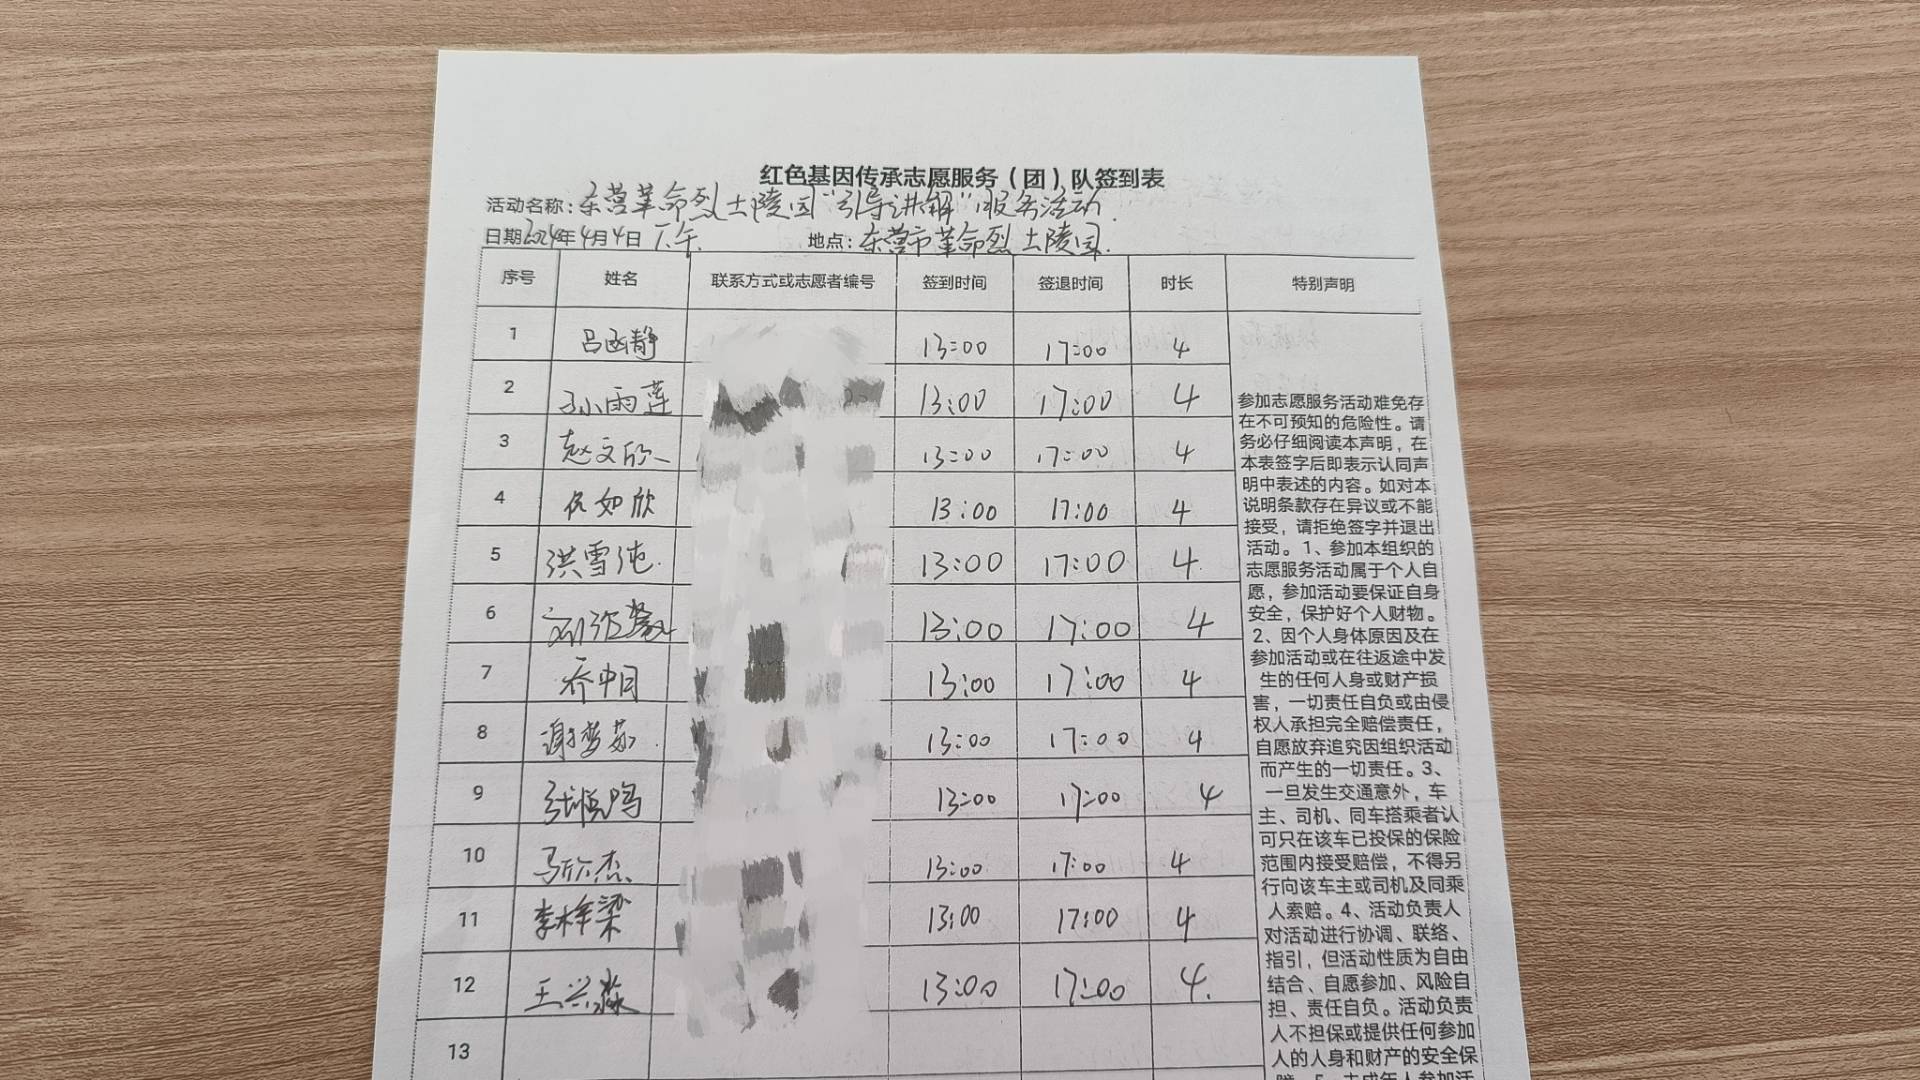 红色基因传承志愿服务（团）队签到表
活动名称：东营革命烈士陵园"引导讲解"服务活动.
日期2024年4月4日 下午. 地点：东营市革命烈士陵园.
序号 姓名 联系方式或志愿者编号 签到时间 签退时间 时长 特别声明
1 吕函静 13:00 17:00 4
2 孙雨莲 13:00 17:00 4
3 赵文欣 13:00 17:00 4
4 侯如欣 13:00 17:00 4
5 洪雪纯. 13:00 17:00 4.
6 13:00 17:00 4
7 乔中月 13:00 17:00 4
8 谢梦茹. 13:00 17:00 4
9 13:00 17:00 4
10 马欣杰 13:00 17:00 4
11 李梓梁 13:00 17:00 4
12 王兴淼 13:00 17:00 4.
13
参加志愿服务活动难免存
在不可预知的危险性。请
务必仔细阅读本声明，在
本表签字后即表示认同声
明中表述的内容。如对本
说明条款存在异议或不能
接受，请拒绝签字并退出
活动。1、参加本组织的
志愿服务活动属于个人自
愿，参加活动要保证自身
安全，保护好个人财物。
2、因个人身体原因及在
参加活动或在往返途中发
生的任何人身或财产损
害，一切责任自负或由侵
权人承担完全赔偿责任，
自愿放弃追究因组织活动
而产生的一切责任。3、
一旦发生交通意外，车
主、司机、同车搭乘者认
可只在该车已投保的保险
范围内接受赔偿，不得另
行向该车主或司机及同乘
人索赔。4、活动负责人
对活动进行协调、联络、
指引，但活动性质为自由
结合、自愿参加、风险自
担、责任自负。活动负责
人不担保或提供任何参加
人的人身和财产的安全保
障。5、未成年人参加活